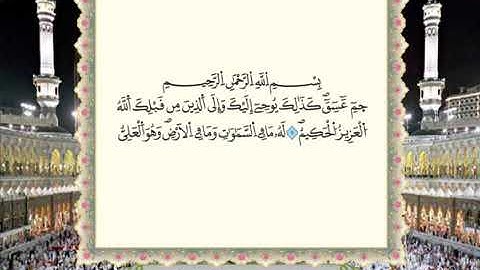 بِسْمِ اللَّهِ الرَّحْمَٰنِ الرَّحِيمِ
حمٓ عٓسٓقٓ كَذَٰلِكَ يُوحِىٓ إِلَيْكَ وَإِلَى ٱلَّذِينَ مِن قَبْلِكَ ٱللَّهُ
ٱلْعَزِيزُ ٱلْحَكِيمُ لَهُۥ مَا فِى ٱلسَّمَٰوَٰتِ وَمَا فِى ٱلْأَرْضِ وَهُوَ ٱلْعَلِىُّ